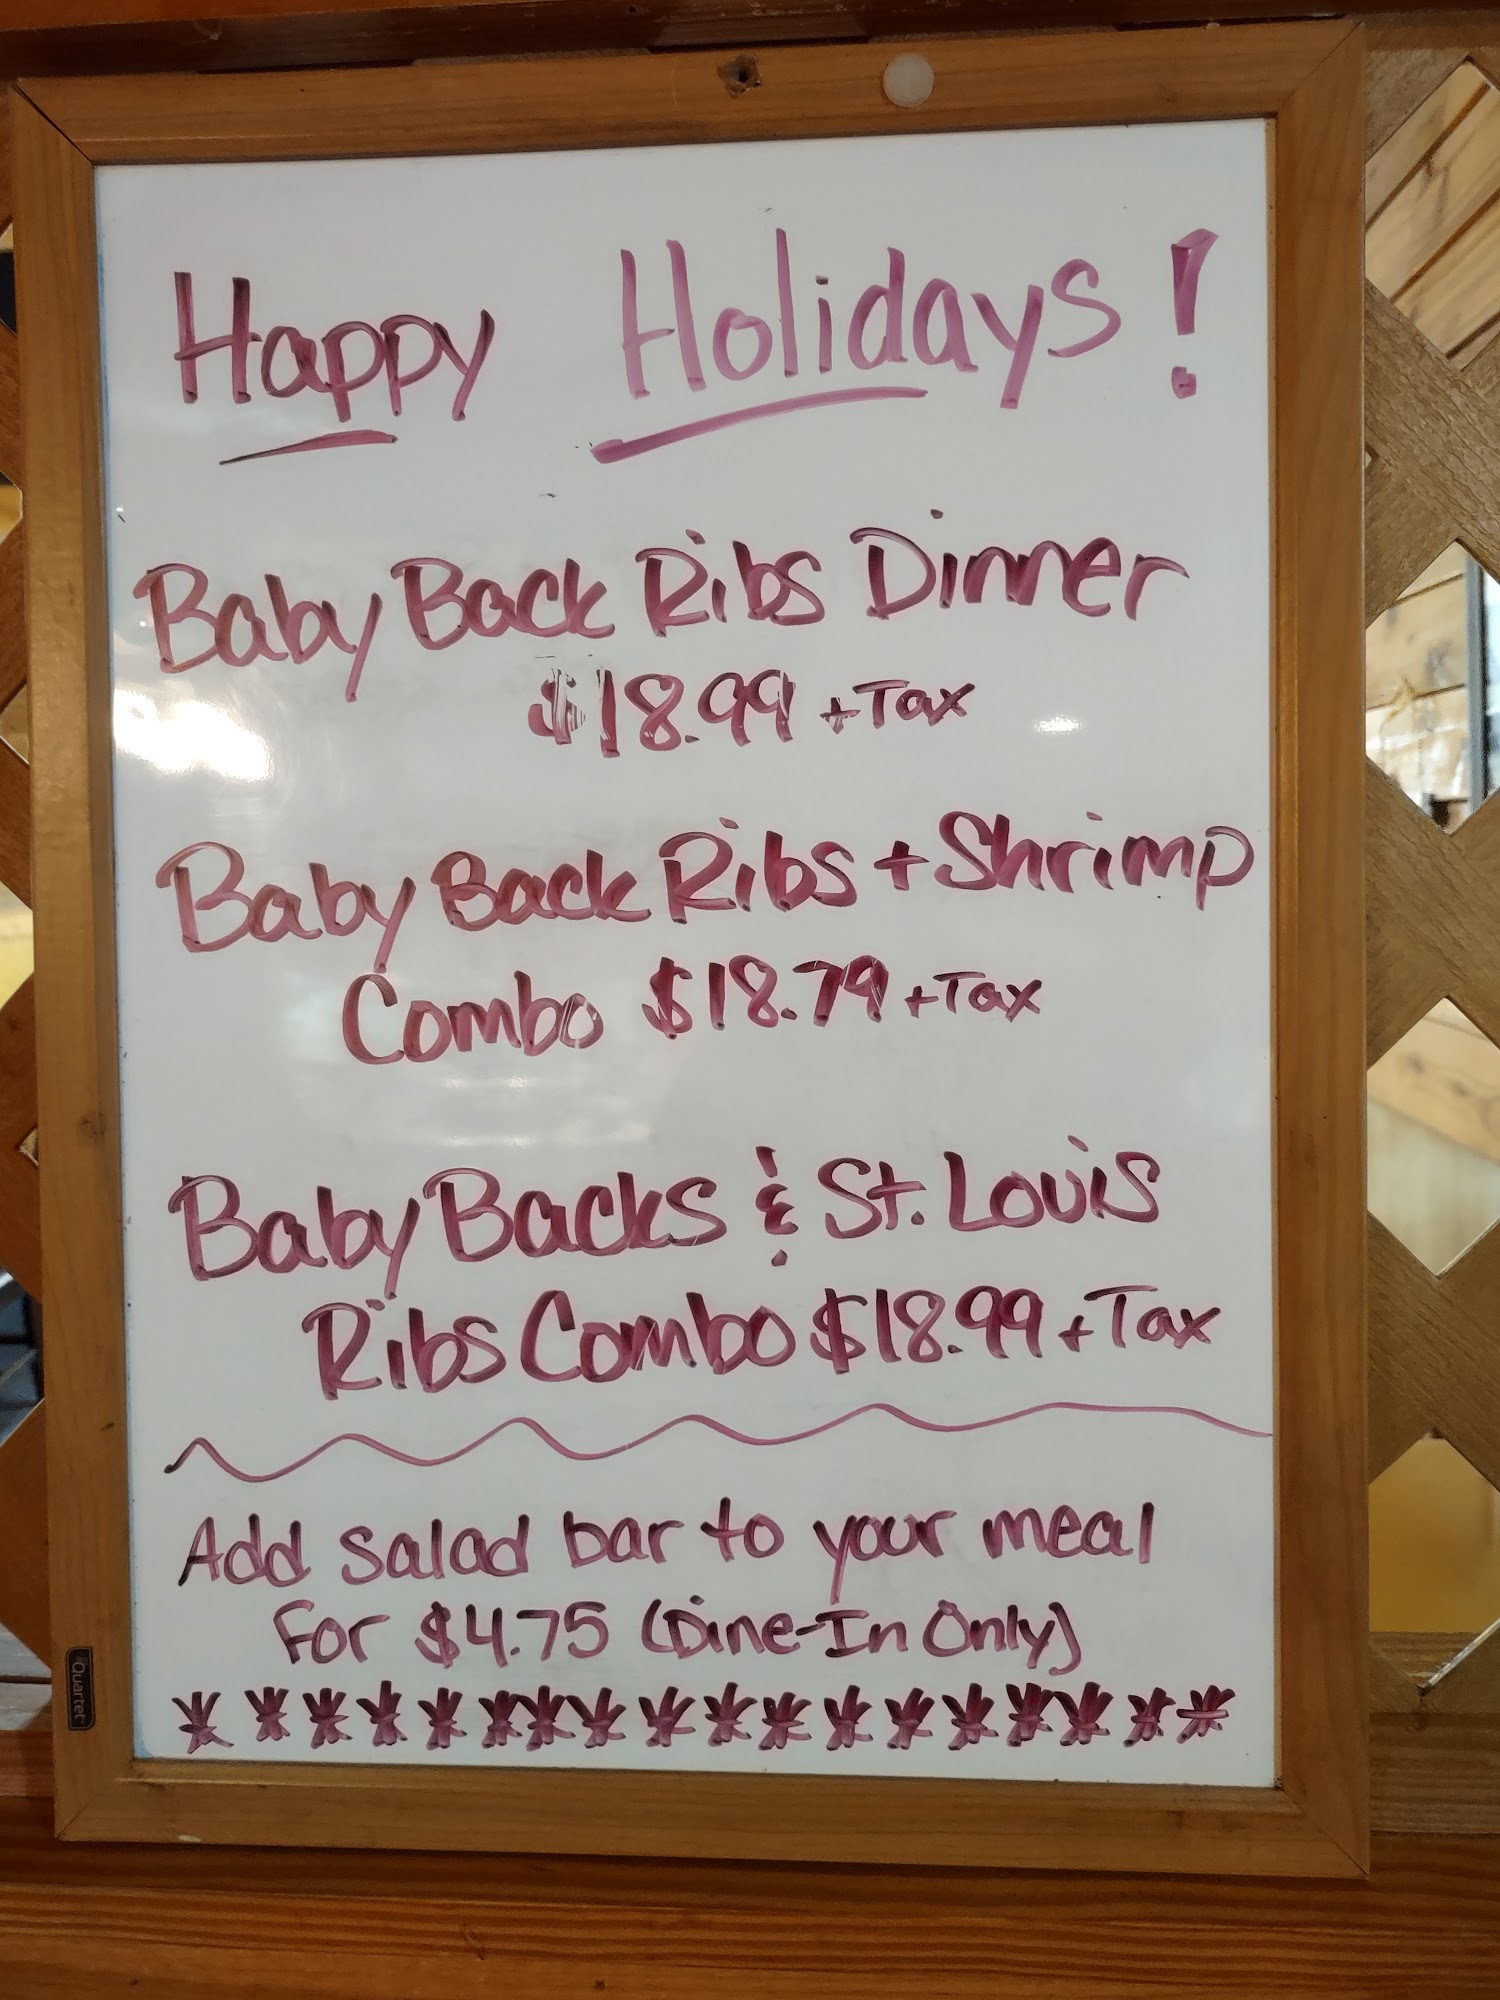 Happy Holidays!
Baby Back Ribs Dinner
$18.99 + Tax
Baby Back Ribs + Shrimp
Combo $18.79 + Tax
Baby Backs & St. Louis
Ribs Combo $18.99 + Tax
Add salad bar to your meal
For $4.75 (Dine-In Only)
Quartet